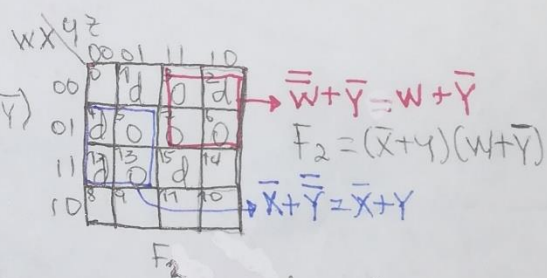 WX YZ
00 01 11 10
00 0 1 d 3 0 2 d
Ȳ) 01 4 d 5 0 7 0 6 0
11 12 d 13 0 15 d 14
10 8 9 11 10
W̿ + Ȳ = W + Ȳ
F₂ = (X̄+y)(W+Ȳ)
X̄ + Y̿ = X̄ + Y
F₂